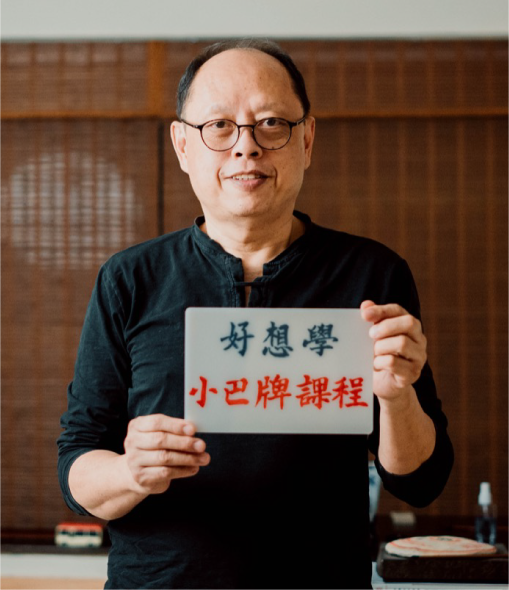 好想學
小巴牌課程